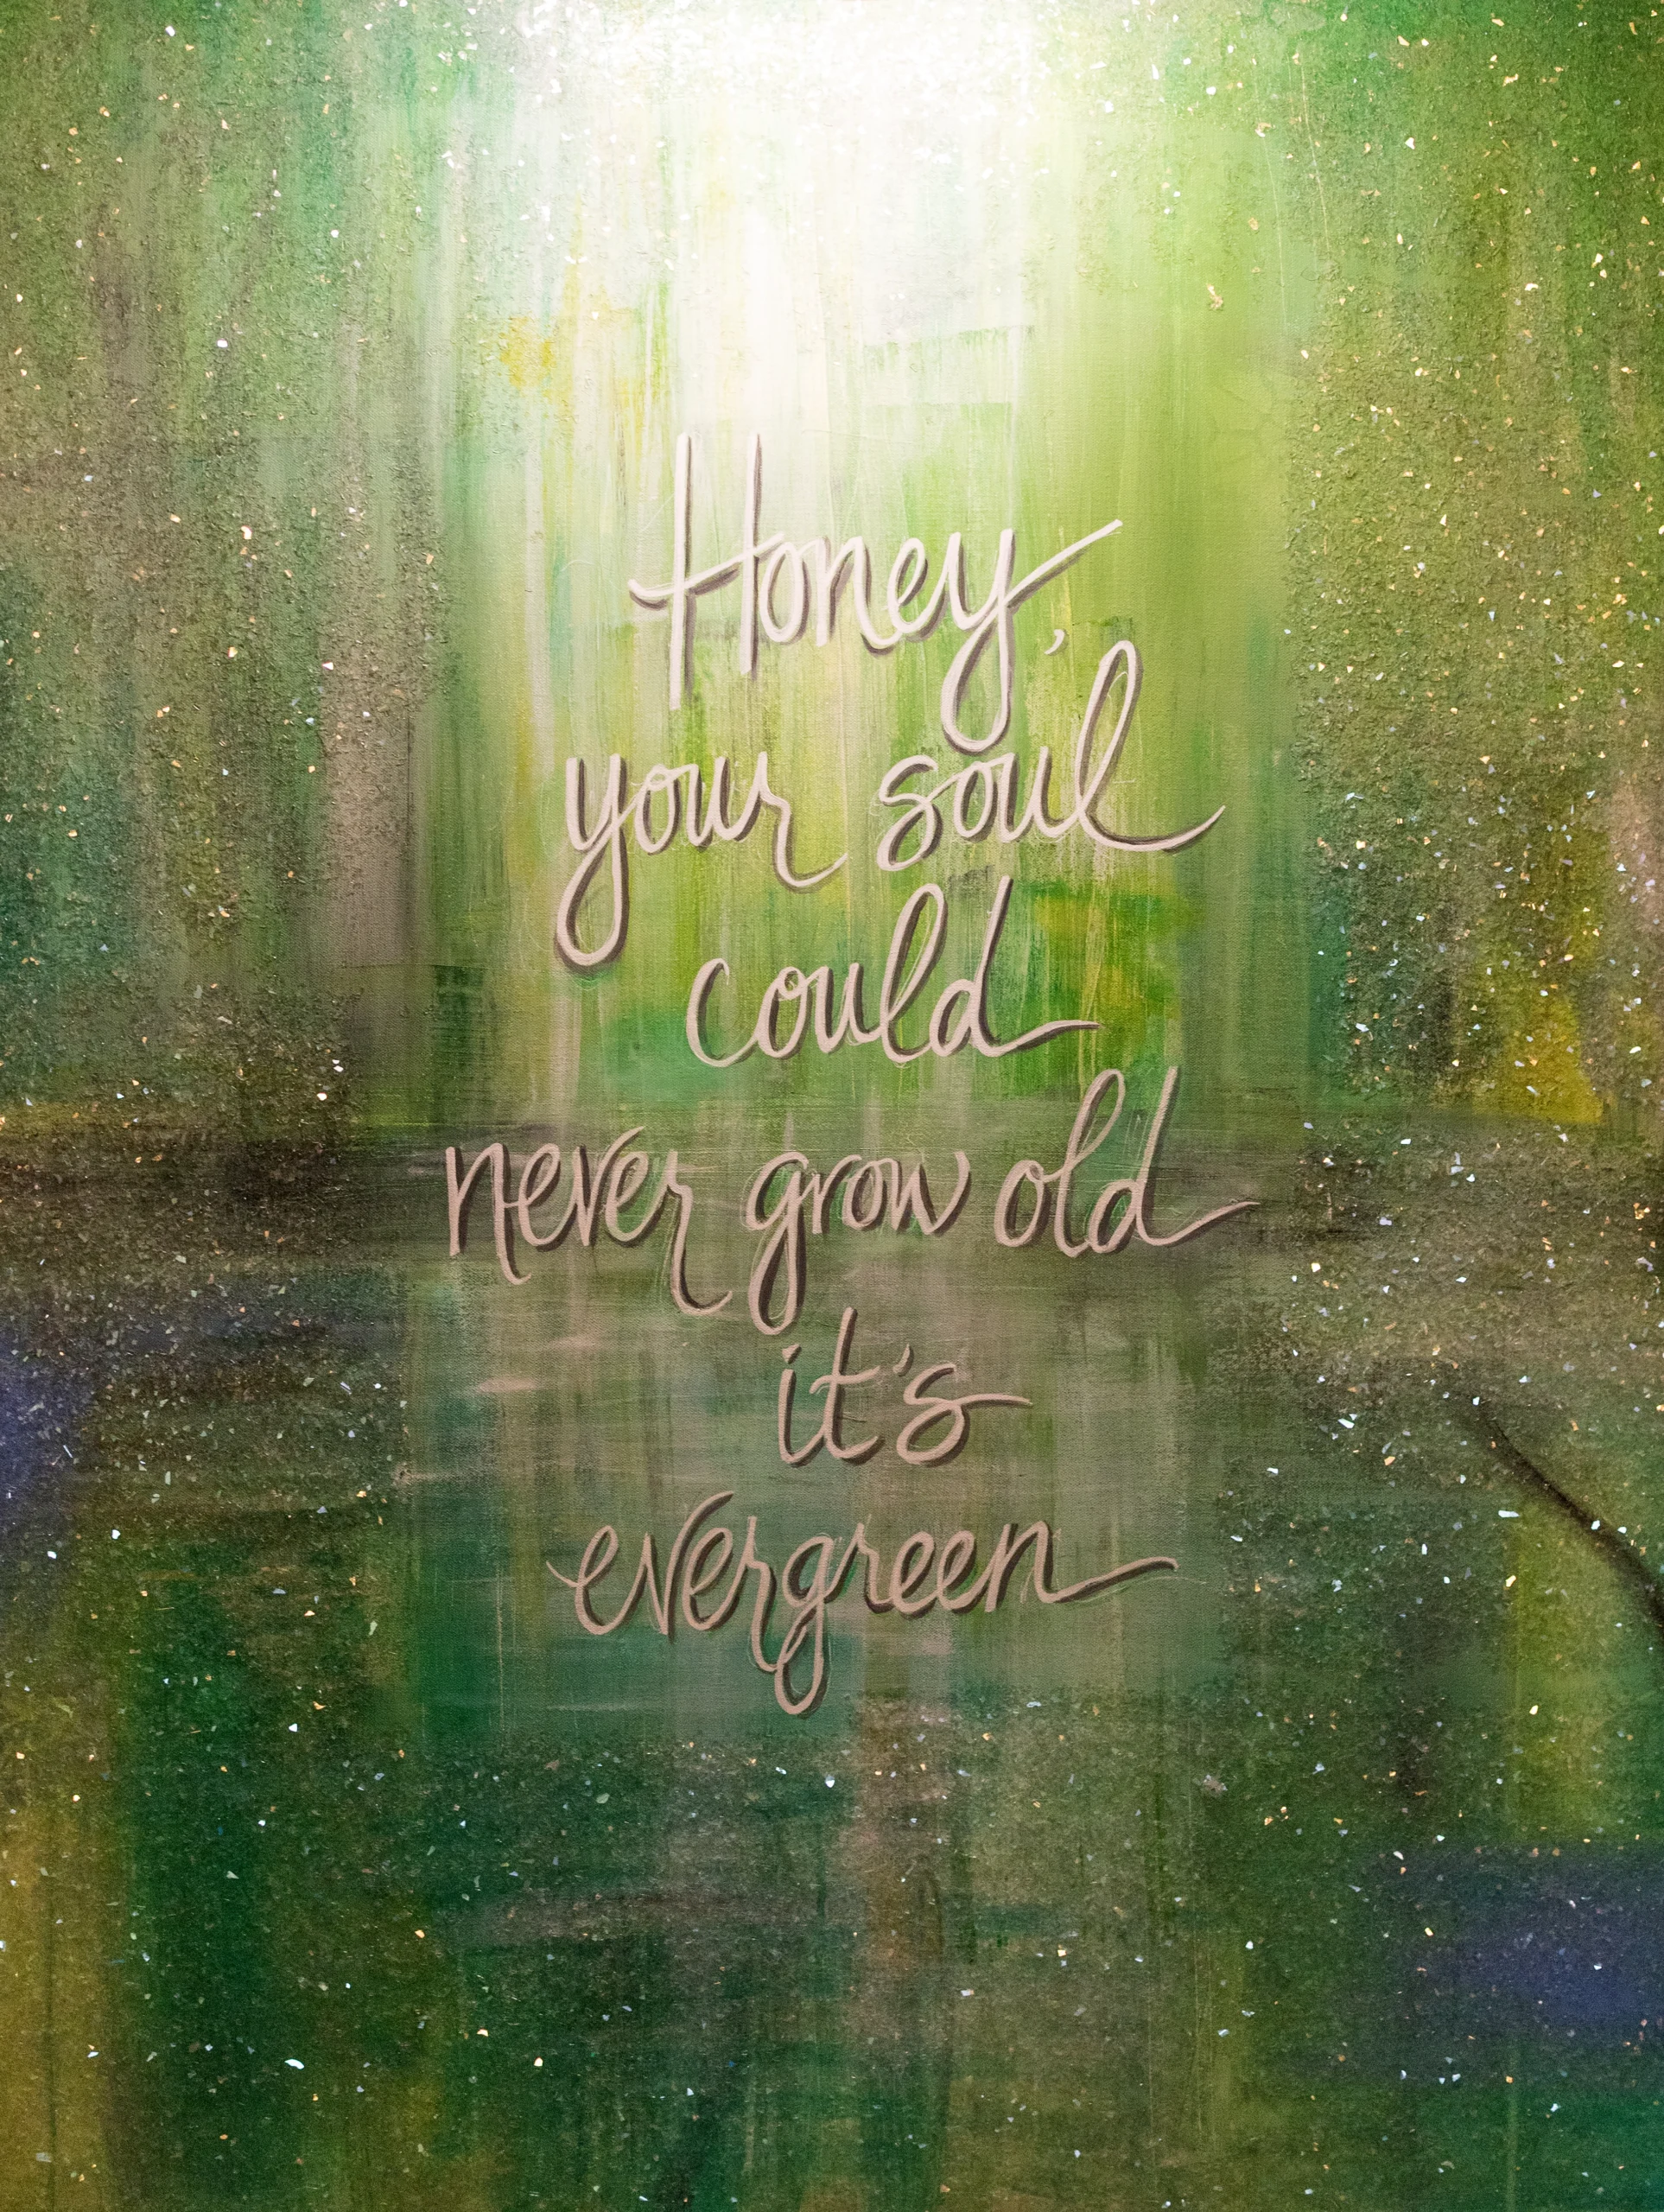 Honey,
your soul
could
never grow old
it's
evergreen